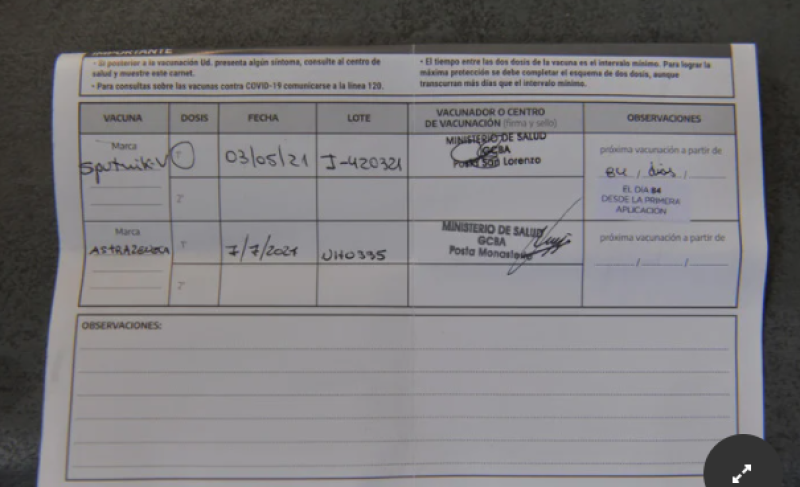 IMPORTANTE
• Si posterior a la vacunación Ud. presenta algún síntoma, consulte al centro de
salud y muestre este carnet.
• Para consultas sobre las vacunas contra COVID-19 comunicarse a la línea 120.
• El tiempo entre las dos dosis de la vacuna es el intervalo mínimo. Para lograr la
máxima protección se debe completar el esquema de dos dosis, aunque
transcurran más días que el intervalo mínimo.
VACUNA DOSIS FECHA LOTE VACUNADOR O CENTRO
DE VACUNACIÓN (firma y sello) OBSERVACIONES
Marca
Sputnik-V 1° 03/05/21 I-420321
MINISTERIO DE SALUD
GCBA
Posta San Lorenzo
próxima vacunación a partir de
84 / días /
EL DIA 84
DESDE LA PRIMERA
APLICACIÓN
2°
Marca
ASTRAZENECA 1° 7/7/2021
MINISTERIO DE SALUD
GCBA
Posta
próxima vacunación a partir de
/ /
2°
OBSERVACIONES: